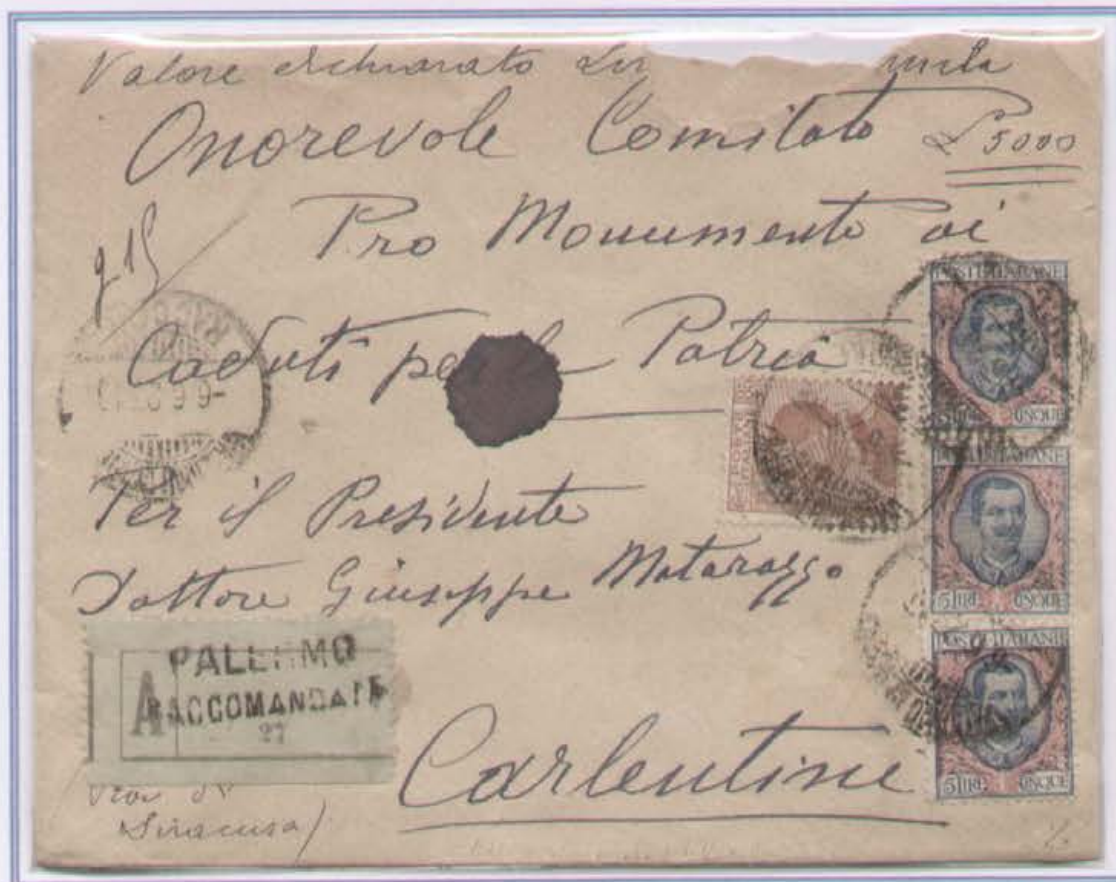 Valore dichiarato Lir mila
Onorevole Comitato £ 5000
Pro Monumento ai
g 15
Caduti per la Patria
Per il Presidente
Dottore Giuseppe Matarazzo
PALERMO
A RACCOMANDATE
27
Carlentini
Siracusa)
POSTE ITALIANE
5 LIRE CINQUE
5 LIRE CINQUE
POSTE ITALIANE
5 LIRE CINQUE